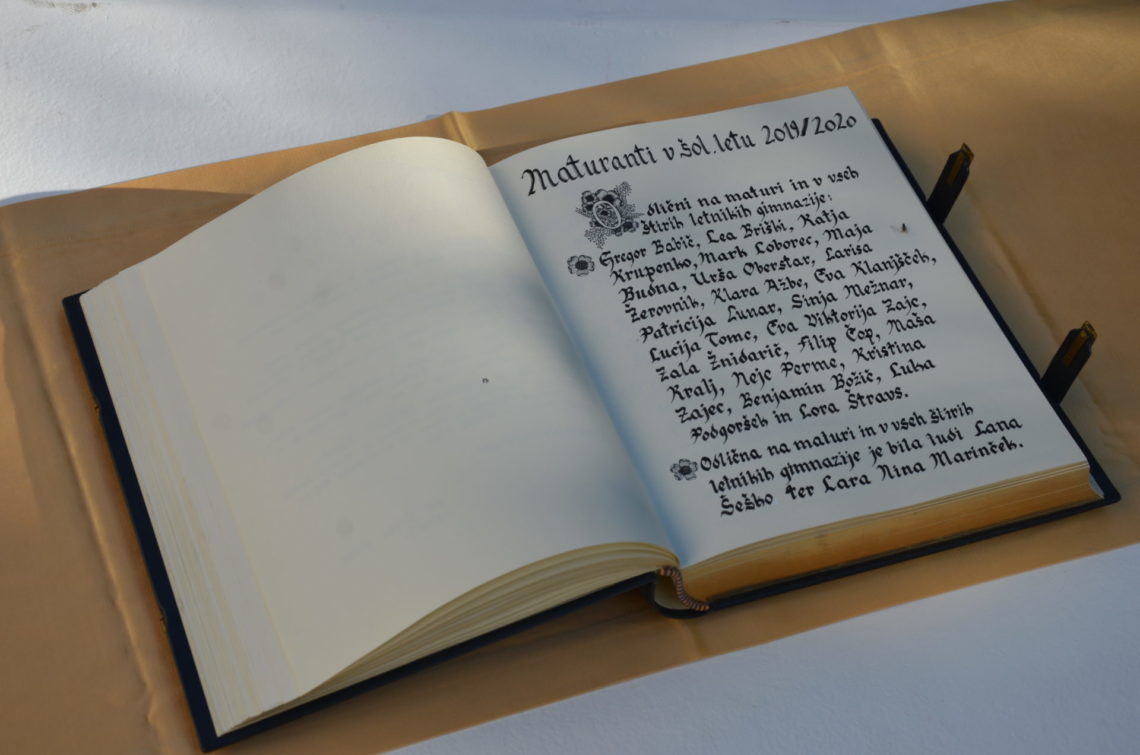 Maturanti v šol. letu 2019/2020
Odlični na maturi in v vseh
štirih letnikih gimnazije:
Gregor Babič, Lea Briški, Katja
Krupenko, Mark Loborec, Maja
Budna, Urša Oberstar, Larisa
Žerovnik, Klara Ažbe, Eva Klanjšček,
Patricija Lunar, Sinja Mežnar,
Lucija Tome, Eva Viktorija Zajc,
Zala Žnidarič, Filip Čop, Maša
Kralj, Nejc Perme, Kristina
Zajec, Benjamin Božič, Luka
Podgoršek in Lora Štravs.
Odlična na maturi in v vseh štirih
letnikih gimnazije je bila tudi Lana
Šeško ter Lara Nina Marinček.